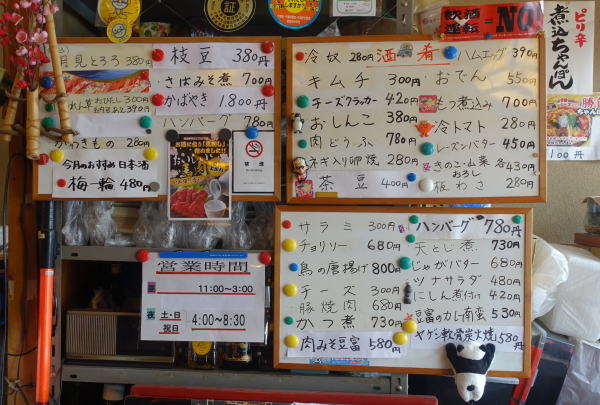 枝豆 380円
月見とろろ 380円
さばみそ煮 700円
おひたし 300円
かばやき 1.800円
ハンバーグ 780円
つけもの 280円
今月のおすすめ 日本酒
梅一輪 480円
禁煙
営業時間
昼 11:00～3:00
夜 土・日 祝日 4:00～8:30
冷奴 280円 酒肴 ハムエッグ 390円
キムチ 300円 おでん 550円
チーズクラッカー 420円 もつ煮込み 700円
おしんこ 380円 冷トマト 280円
肉どうふ 780円 レーズンバター 450円
ネギ入り卵焼 280円 きのこ・山菜 各430円
おろし
茶豆 400円 板わさ 280円
サラミ 300円 ハンバーグ 780円
チョリソー 680円 天とじ煮 730円
鳥の唐揚げ 800円 じゃがバター 680円
チーズ 300円 ツナサラダ 480円
豚焼肉 680円 にしん煮付け 420円
かつ煮 730円 豆富のカレー南蛮 530円
肉みそ豆富 580円 ヤゲン軟骨炭火焼 580円
飲酒運転=NO!
ピリ辛
煮込ちゃんぽん
100円